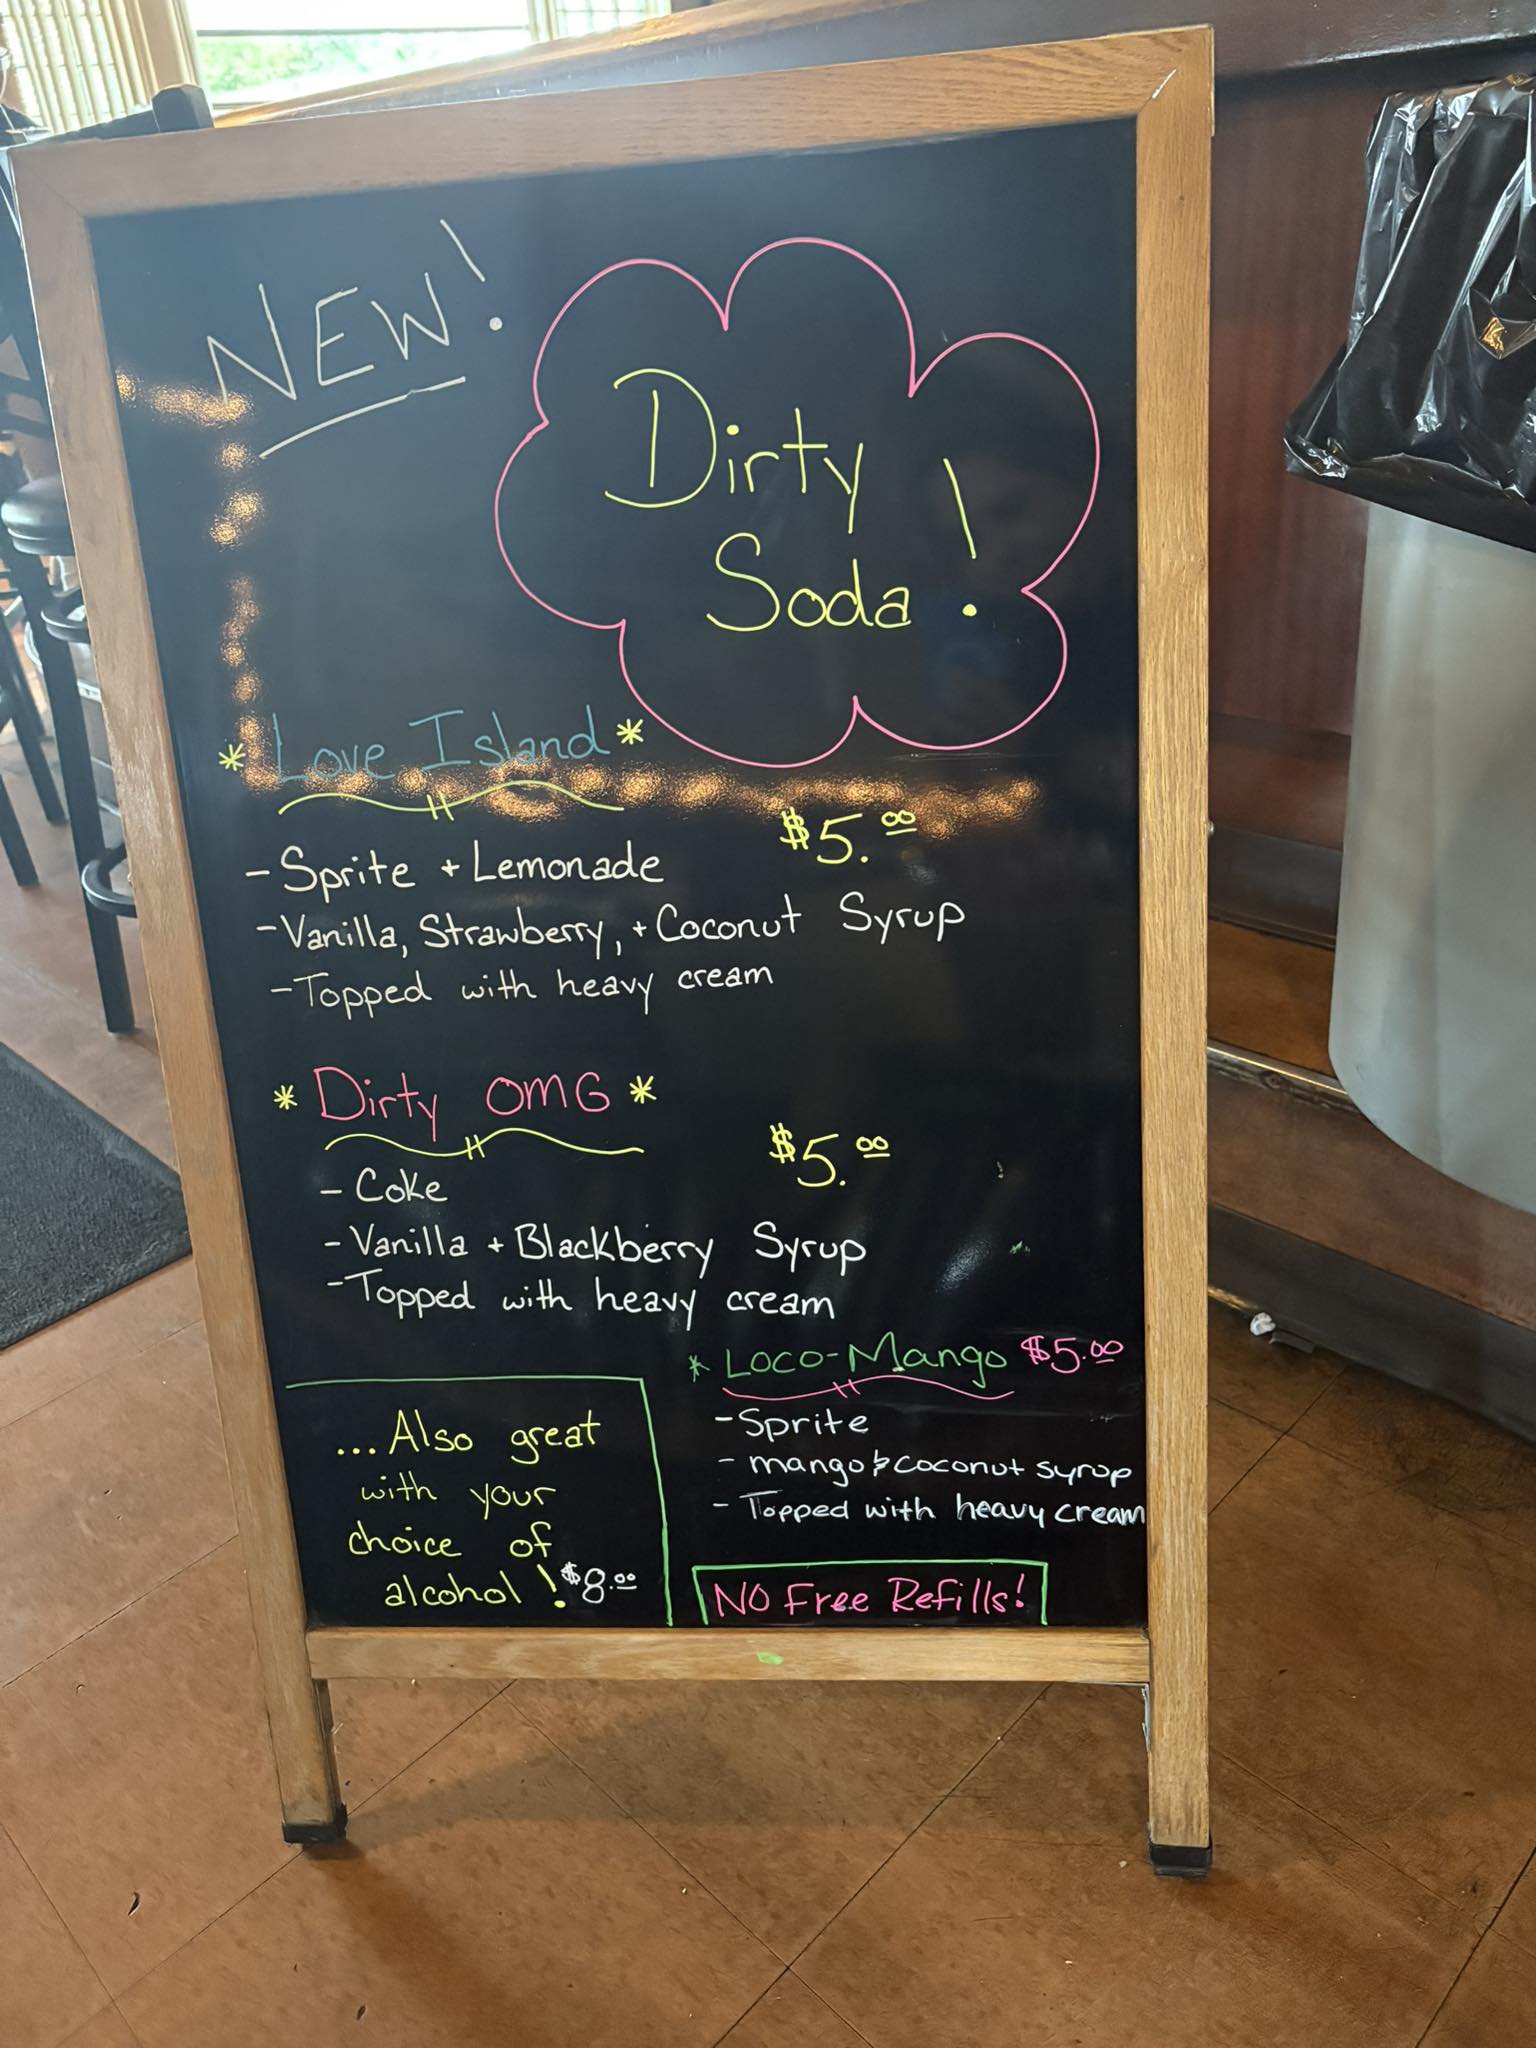 NEW!
Dirty
Soda!
* Love Island *
$5.00
- Sprite + Lemonade
- Vanilla, Strawberry, + Coconut Syrup
- Topped with heavy cream
* Dirty OMG *
$5.00
- Coke
- Vanilla + Blackberry Syrup
- Topped with heavy cream
* Loco-Mango $5.00
- Sprite
- mango & coconut syrup
- Topped with heavy cream
...Also great
with your
choice of
alcohol! $8.00
NO Free Refills!